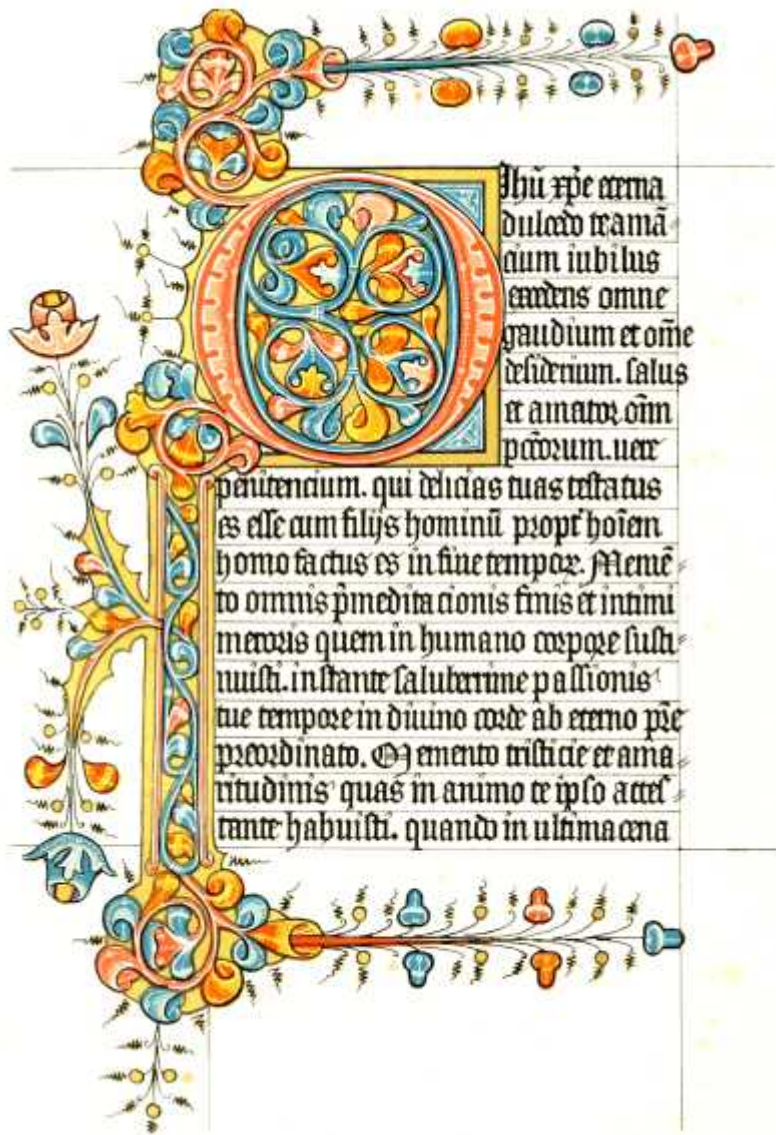 O Jhū xp̄e eterna
dulcedo te amā
cium iubilus
excedens omne
gaudium et om̄e
desiderium. salus
et amator om̄n
pctōrum. uere
penitencium. qui delicias tuas testatus
es esse cum filijs hominū propt̓ hoīem
homo factus es in fine tempoꝝ. Memē
to omnis p̄meditacionis finis et intimi
meroris quem in humano corpore susti
nuisti. instante saluberrime passionis
tue tempore in diuino corde ab eterno p̄re
preordinato. Memento tristicie et ama
ritudinis quas in animo te ipso attes
tante habuisti. quando in ultima cena